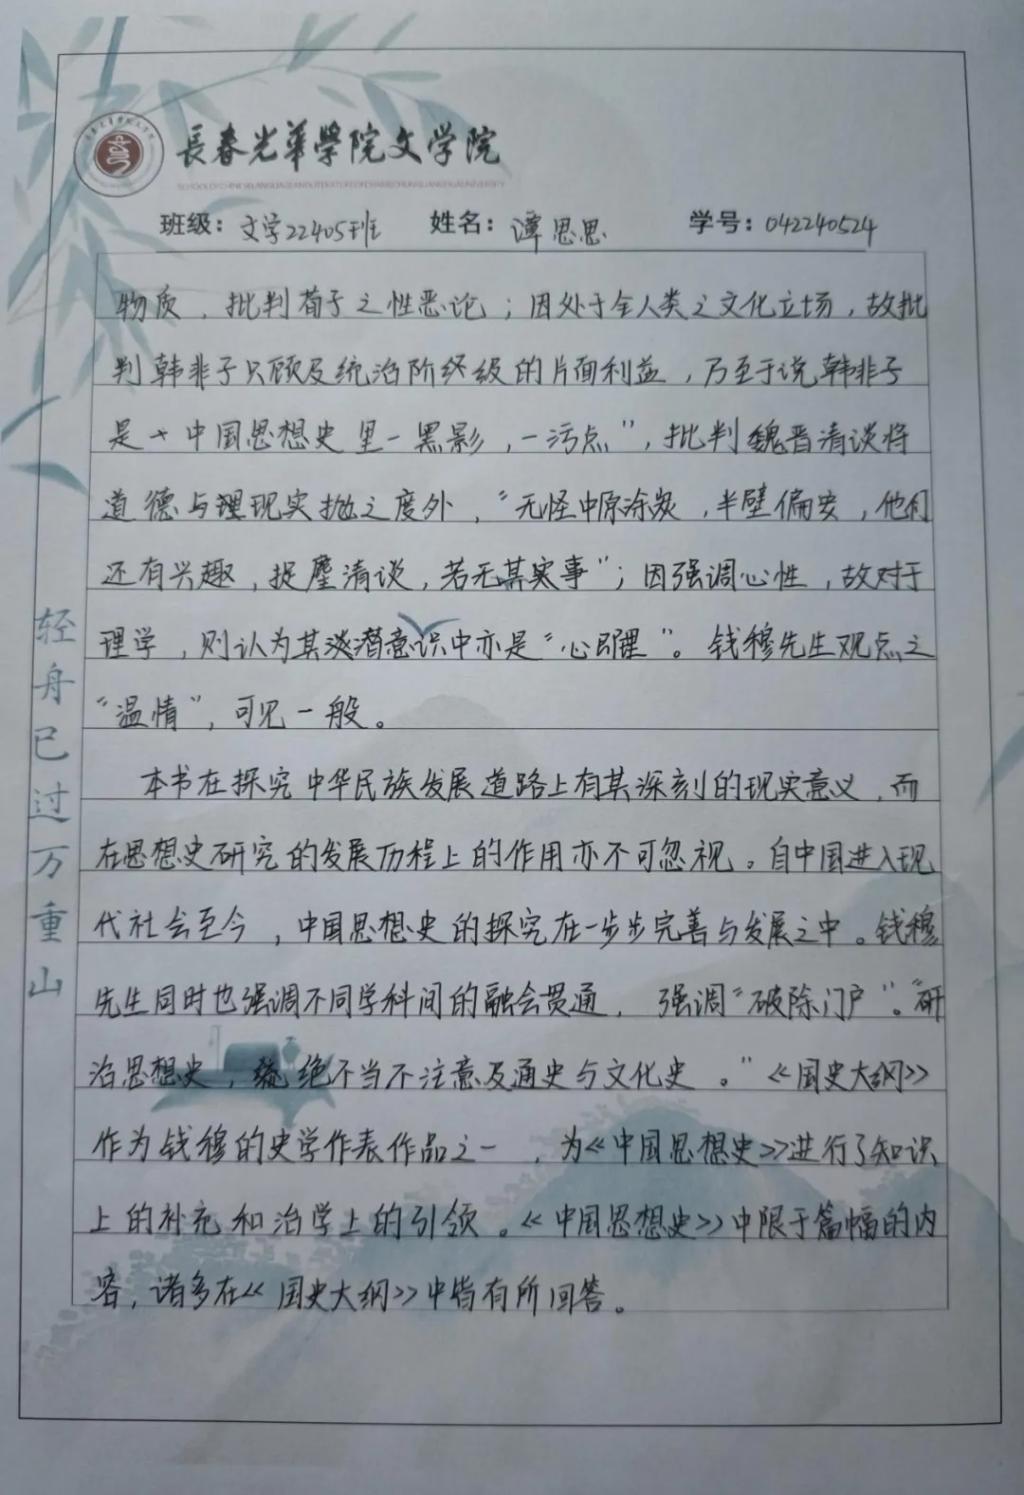 長春光華學院文学院
SCHOOL OF CHINESE LANGUAGE AND LITERATURE OF CHANGCHUN GUANGHUA UNIVERSITY
班级：文学22405班 姓名：谭思思 学号：042240524
物质，批判荀子之性恶论；因处于全人类之文化立场，故批
判韩非子只顾及统治阶终级的片面利益，乃至于说韩非子
是"中国思想史里一黑影，一污点"，批判魏晋清谈将
道德与理现实抛之度外，"无怪中原涂炭，半壁偏安，他们
还有兴趣，捉麈清谈，若无其实事"；因强调心性，故对于
理学，则认为其淡潜意识中亦是"心即理"。钱穆先生观点之
"温情"，可见一般。
本书在探究中华民族发展道路上有其深刻的现实意义，而
在思想史研究的发展历程上的作用亦不可忽视。自中国进入现
代社会至今，中国思想史的探究在一步步完善与发展之中。钱穆
先生同时也强调不同学科间的融会贯通，强调"破除门户"。"研
治思想史，绝不当不注意及通史与文化史。"《国史大纲》
作为钱穆的史学作表作品之一，为《中国思想史》进行了知识
上的补充和治学上的引领。《中国思想史》中限于篇幅的内
容，诸多在《国史大纲》中皆有所回答。
轻舟已过万重山